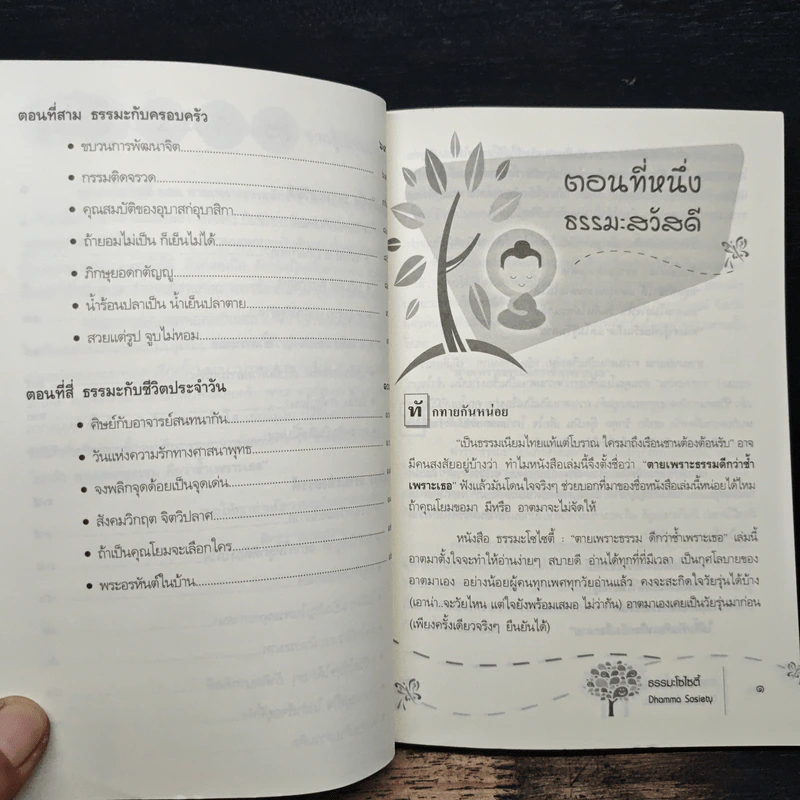 ตอนที่สาม ธรรมะกับครอบครัว
• ขบวนการพัฒนาจิต
• กรรมติดจรวด
• คุณสมบัติของอุบาสกอุบาสิกา
• ถ้ายอมไม่เป็น ก็เย็นไม่ได้
• ภิกษุยอดกตัญญู
• น้ำร้อนปลาเป็น น้ำเย็นปลาตาย
• สวยแต่รูป จูบไม่หอม
ตอนที่สี่ ธรรมะกับชีวิตประจำวัน
• ศิษย์กับอาจารย์สนทนากัน
• วันแห่งความรักทางศาสนาพุทธ
• จงพลิกจุดด้อยเป็นจุดเด่น
• สังคมวิกฤต จิตวิปลาศ
• ถ้าเป็นคุณโยมจะเลือกใคร
• พระอรหันต์ในบ้าน
ตอนที่หนึ่ง
ธรรมะสวัสดี
ทักทายกันหน่อย
"เป็นธรรมเนียมไทยแท้แต่โบราณ ใครมาถึงเรือนชานต้องต้อนรับ" อาจ
มีคนสงสัยอยู่บ้างว่า ทำไมหนังสือเล่มนี้จึงตั้งชื่อว่า "ตายเพราะธรรมดีกว่าช้ำ
เพราะเธอ" ฟังแล้วมันโดนใจจริงๆ ช่วยบอกที่มาของชื่อหนังสือเล่มนี้หน่อยได้ไหม
ถ้าคุณโยมขอมา มีหรือ อาตมาจะไม่จัดให้
หนังสือ ธรรมะโซไซตี้ : "ตายเพราะธรรม ดีกว่าช้ำเพราะเธอ" เล่มนี้
อาตมาตั้งใจจะทำให้อ่านง่ายๆ สบายดี อ่านได้ทุกที่ที่มีเวลา เป็นกุศโลบายของ
อาตมาเอง อย่างน้อยผู้คนทุกเพศทุกวัยอ่านแล้ว คงจะสะกิดใจวัยรุ่นได้บ้าง
(เอาน่า..จะวัยไหน แต่ใจยังพร้อมเสมอ ไม่ว่ากัน) อาตมาเองเคยเป็นวัยรุ่นมาก่อน
(เพียงครั้งเดียวจริงๆ ยืนยันได้)
ธรรมะโซไซตี้
Dhamma Sosiety
๑